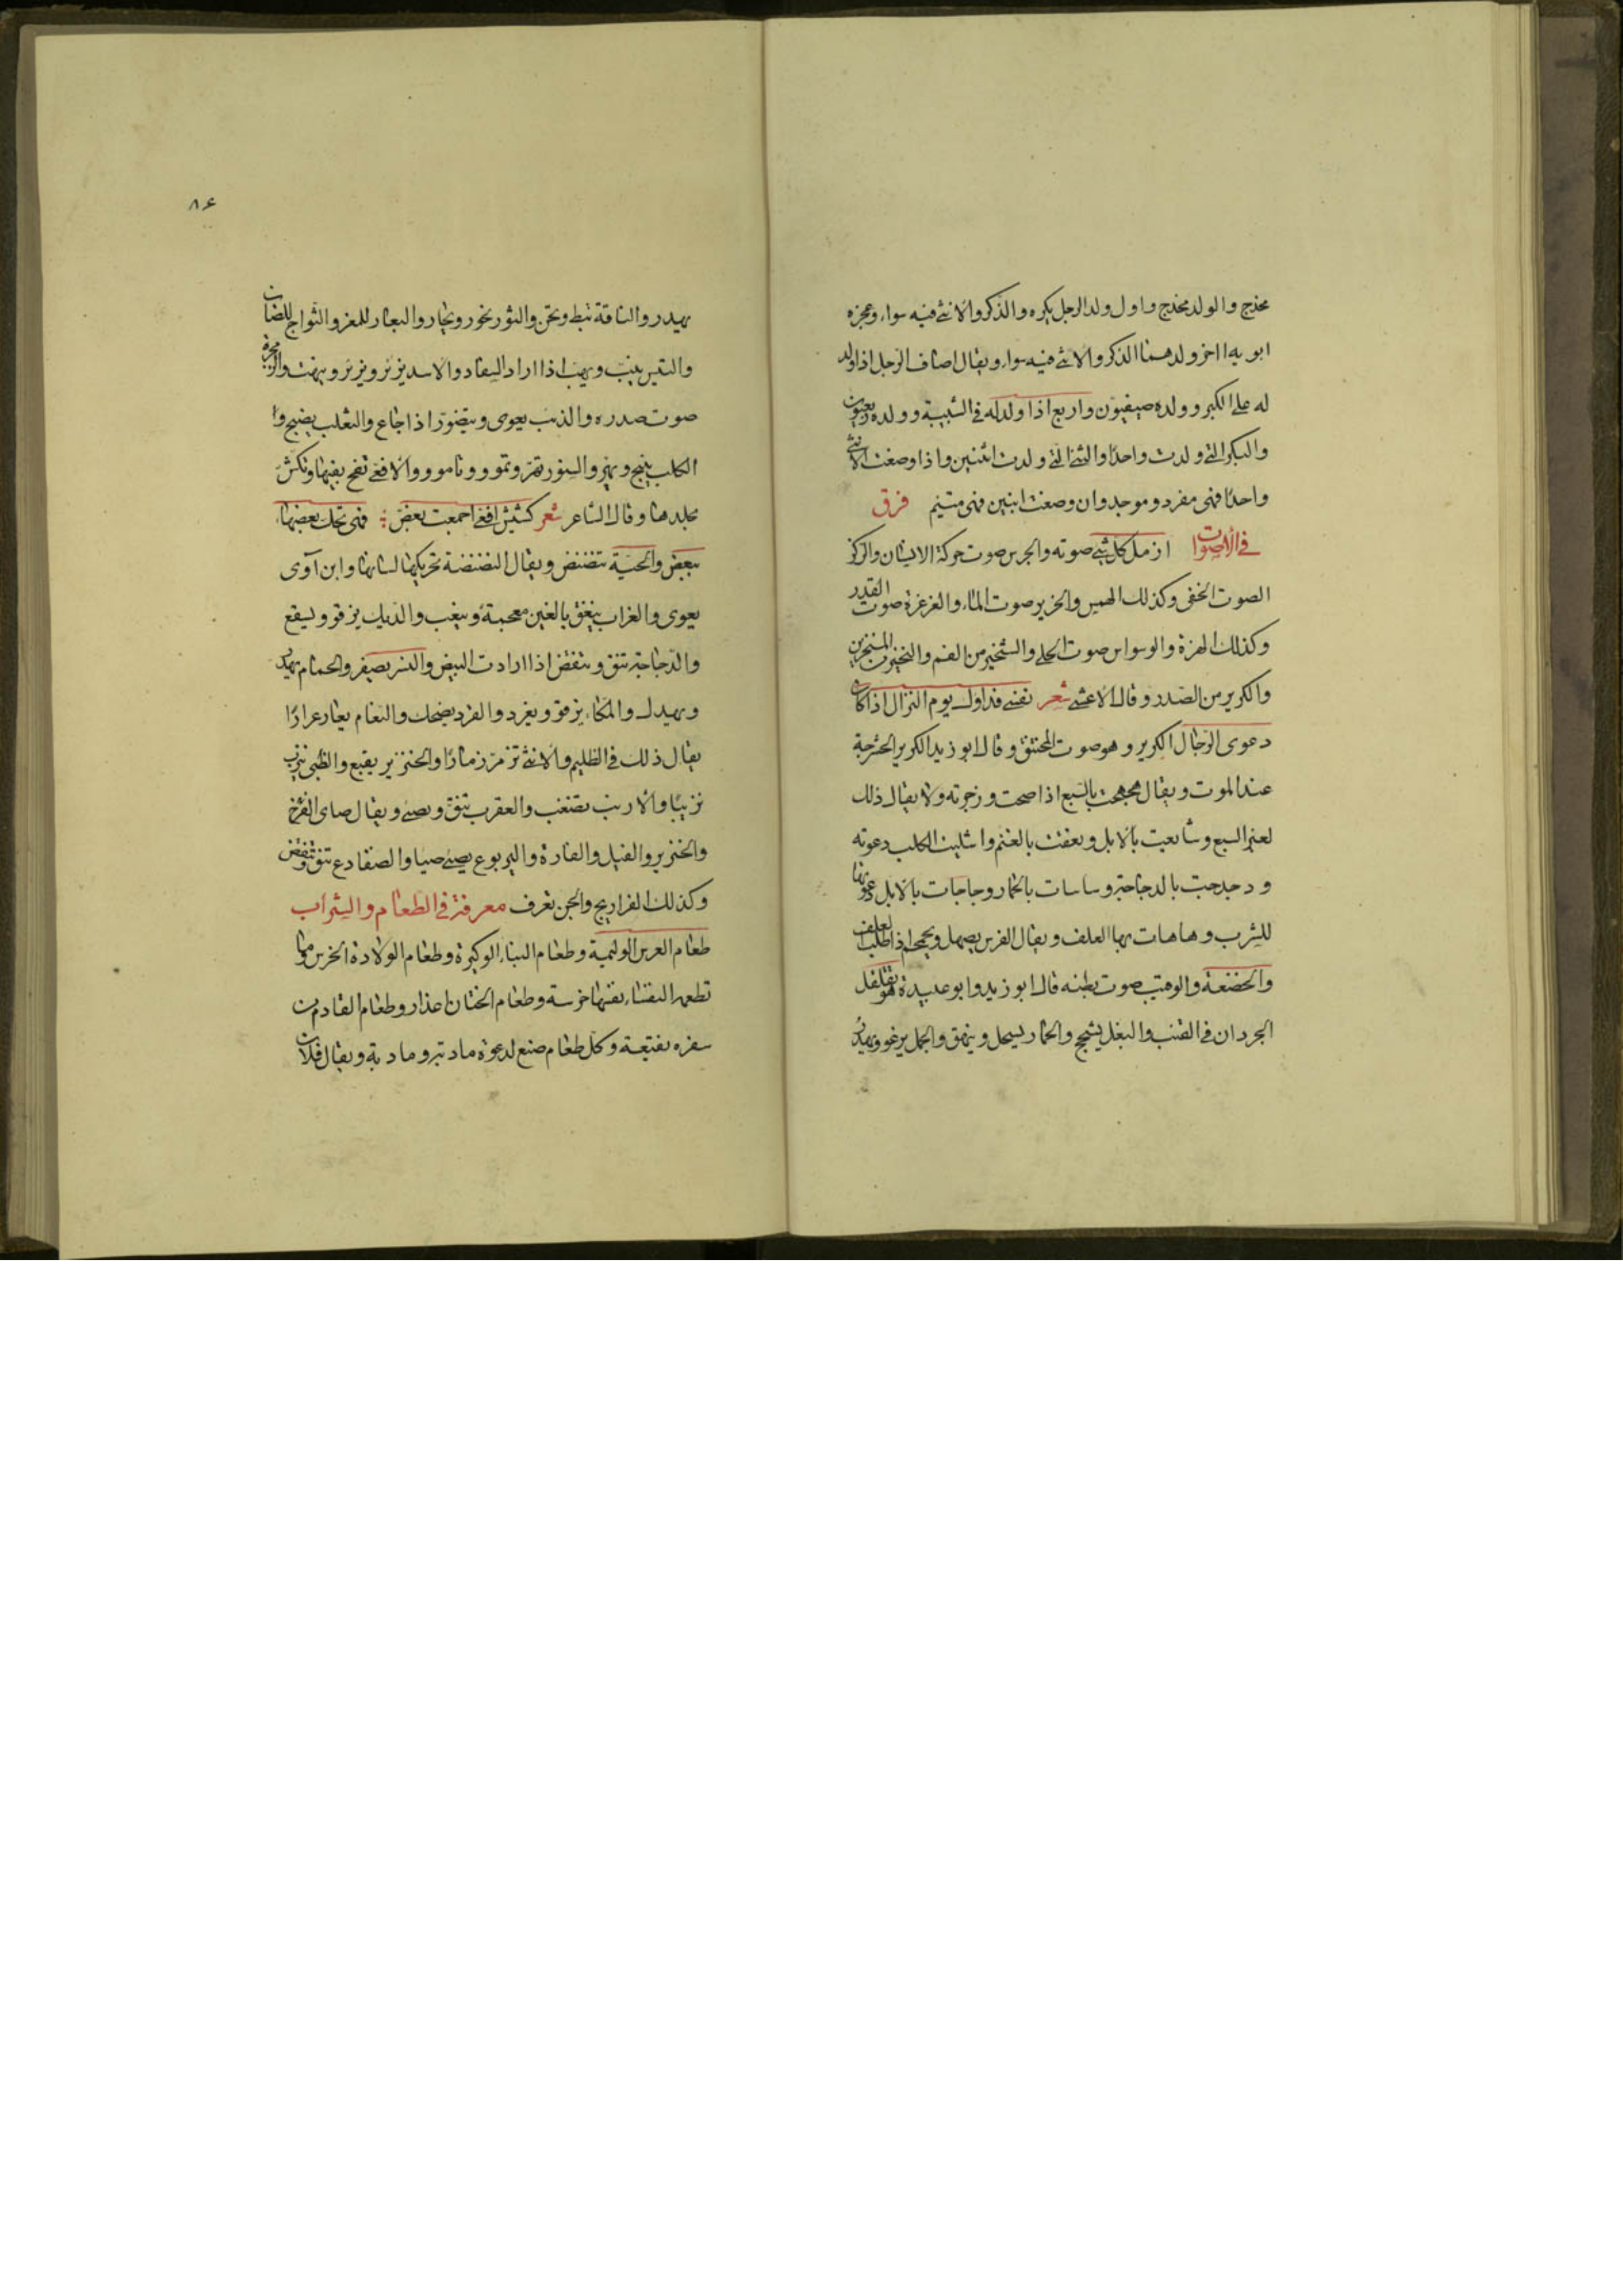 مخدج والولد مخدج واول ولد الرجل بكره والذكر والانثى فيه سواء وعجزه
ابويه اخر ولدهما الذكر والانثى فيه سواء ويقال اصاف الرجل اذا ولد
له على الكبر وولده صيفيون واربع اذا ولد له في الشبيبة وولده ربعيون
والبكر التي ولدت واحدًا والثنى التي ولدت اثنين واذا وضعت الانثى
واحدًا فهى مفرد وموحد وان وضعت اثنين فهى متيم فرق
في الأصوات ازمل كل شئ صوته والجرس صوت حركة الانسان والركز
الصوت الخفى وكذلك الهميس والخرير صوت الماء والغرغرة صوت القدر
وكذلك الهزة والوسواس صوت الحلى والشخير من الفم والنخير من المنخرين
والكرير من الصدر وقال الاعشى شعر نفسى فداوك يوم النزال اذا كان
دعوى الرجال الكرير وهو صوت المختنق وقال ابو زيد الكرير الحشرجة
عند الموت ويقال هجهجت بالسبع اذا صحت وزجرته ولا يقال ذلك
لغير السبع وشايعت بالابل ونعقت بالغنم واشليت الكلب دعوته
ودجدجت بالدجاجة وساسات بالحمار وجاجات بالابل دعوتها
للشرب وهاهات بها العلف ويقال الفرس يصهل ويحمحم اذا طلب العلف
والخضعة والوقيب صوت بطنه قال ابو زيد وابو عبيدة هو تقلقل
الجردان في القنب والبغل يشحج والحمار يسحل وينهق والجمل يرغو ويهدر
۸۶
يهدر والناقة تئط وتحن والثور يخور ويجار واليعار للمعز والثواج للضان
والتيس ينب ويهب اذا اراد السفاد والاسد يزئر ويزئر وينهت والزمجرة
صوت صدره والذئب يعوى ويتضور اذا جاع والثعلب يضبح وا
الكلب ينبح ويهر والسنور تهر وتموو وتامووو والافعى تفح بفيها وتكش
بجلدها وقال الشاعر شعر كشيش افعى اجمعت بعض فهى تحك بعضها
ببعض والحية تنضنض ويقال النضنضة تحريكها لسانها وابن آوى
يعوى والغراب ينغق بالغين معجمة وينغب والديك يزقو ويسقع
والدجاجة تنق وتنقض اذا ارادت البيض والنسر يصفر والحمام يهدر
ويهدل والمكاء يزقو ويغرد والقرد يضحك والنعام يعار عرارًا
يقال ذلك في الظليم والانثى تزمر زمارًا والخنزير يقبع والظبى ينزب
نزيبًا والارنب تضغب والعقرب تنق وتصئ ويقال صاى الفرخ
والخنزير والفيل والفارة واليربوع يصئ صيا والضفادع تنق وتنقض
وكذلك الفراريج والجن تعزف معرفة في الطعام والشراب
طعام العرس الوليمة وطعام البناء الوكيرة وطعام الولادة الخرس وما
تطعمه النفساء نفسها خرسة وطعام الختان اعذار وطعام القادم من
سفره نقيعة وكل طعام صنع لدعوة مادبة ومادبة ويقال فلان